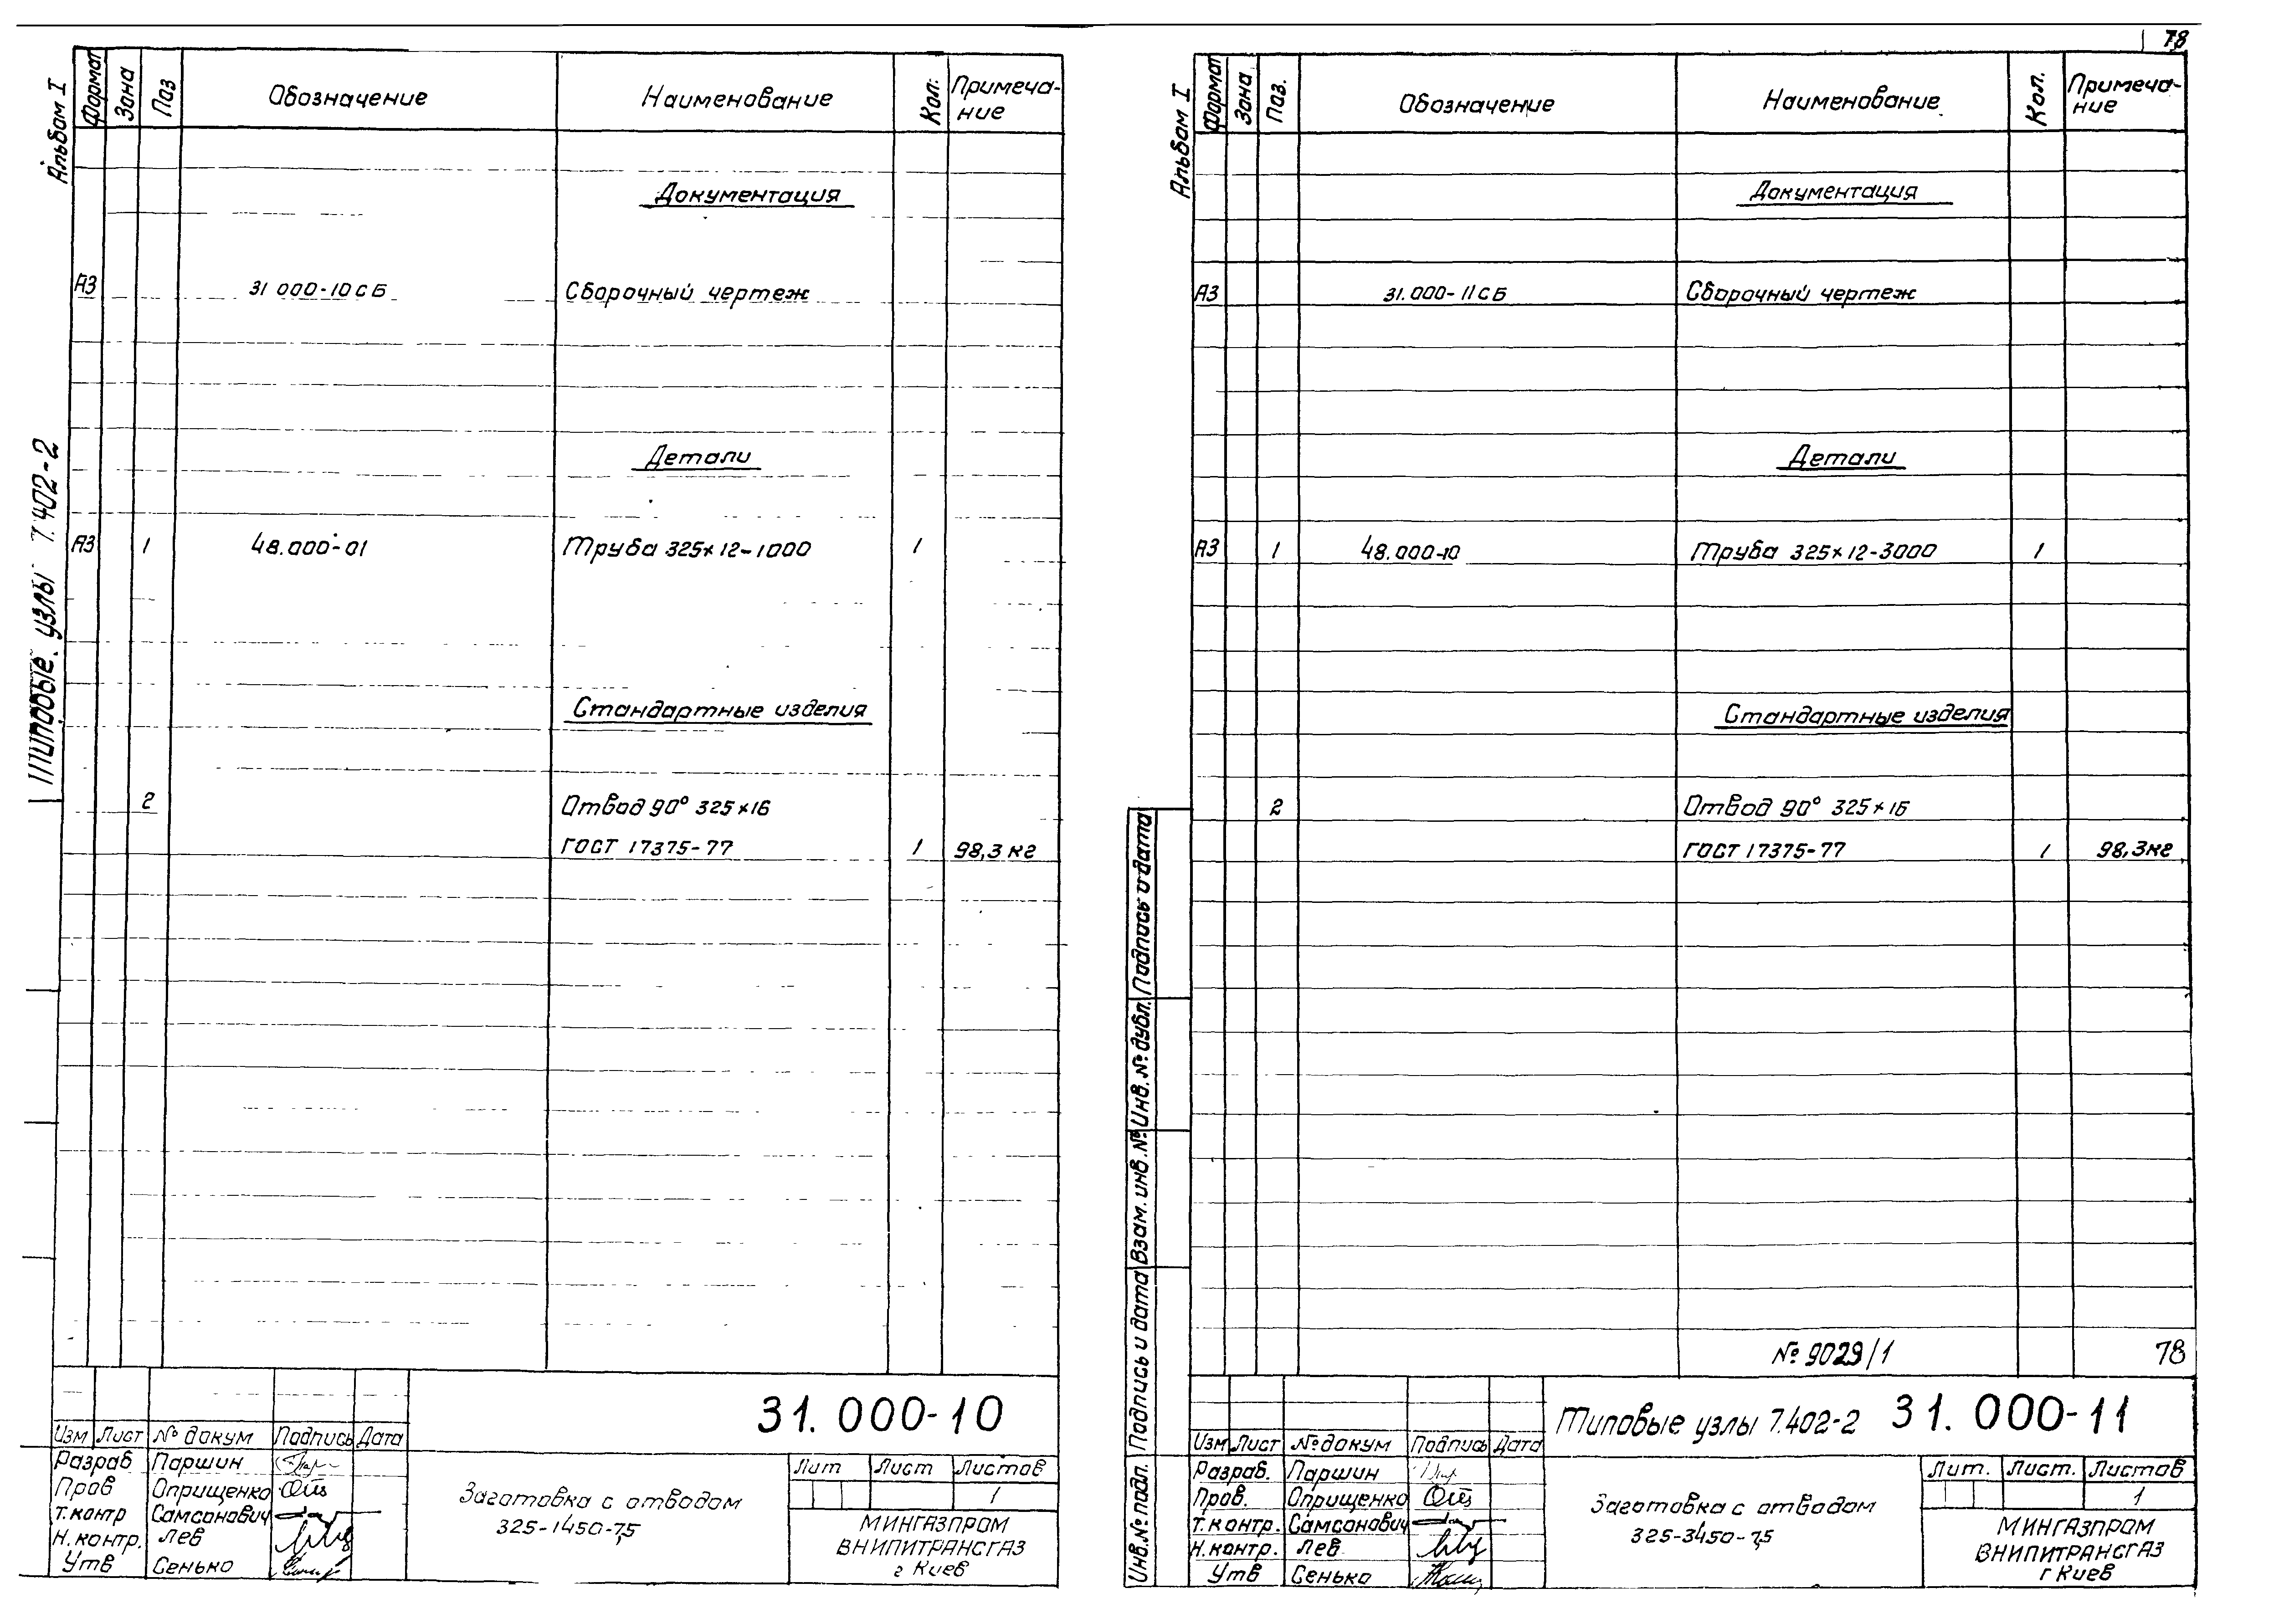 78
Альбом I
Типовые узлы 7.402-2
Формат Зона Поз Обозначение Наименование Кол. Примеча-
ние
Документация
А3 31 000-10 СБ Сборочный чертеж
Детали
А3 1 48.000-01 Труба 325×12-1000 1
Стандартные изделия
2 Отвод 90° 325×16
ГОСТ 17375-77 1 98,3 кг
31.000-10
Изм Лист № докум Подпись Дата
Разраб Паршин
Пров Оприщенко
Т.контр Самсонович
Н.контр. Лев
Утв Сенько
Заготовка с отводом
325-1450-7,5
Лит Лист Листов
1
МИНГАЗПРОМ
ВНИПИТРАНСГАЗ
г Киев
Альбом I
Формат Зона Поз. Обозначение Наименование Кол. Примеча-
ние
Документация
А3 31.000-11 СБ Сборочный чертеж
Детали
А3 1 48.000-10 Труба 325×12-3000 1
Стандартные изделия
2 Отвод 90° 325×16
ГОСТ 17375-77 1 98,3 кг
№ 9029/1 78
Инв.№ подл. Подпись и дата Взам. инв. № Инв. № дубл. Подпись и дата
Типовые узлы 7.402-2 31.000-11
Изм Лист № докум Подпись Дата
Разраб. Паршин
Пров. Оприщенко
Т.контр. Самсонович
Н.контр. Лев
Утв Сенько
Заготовка с отводом
325-3450-7,5
Лит. Лист. Листов
1
МИНГАЗПРОМ
ВНИПИТРАНСГАЗ
г Киев